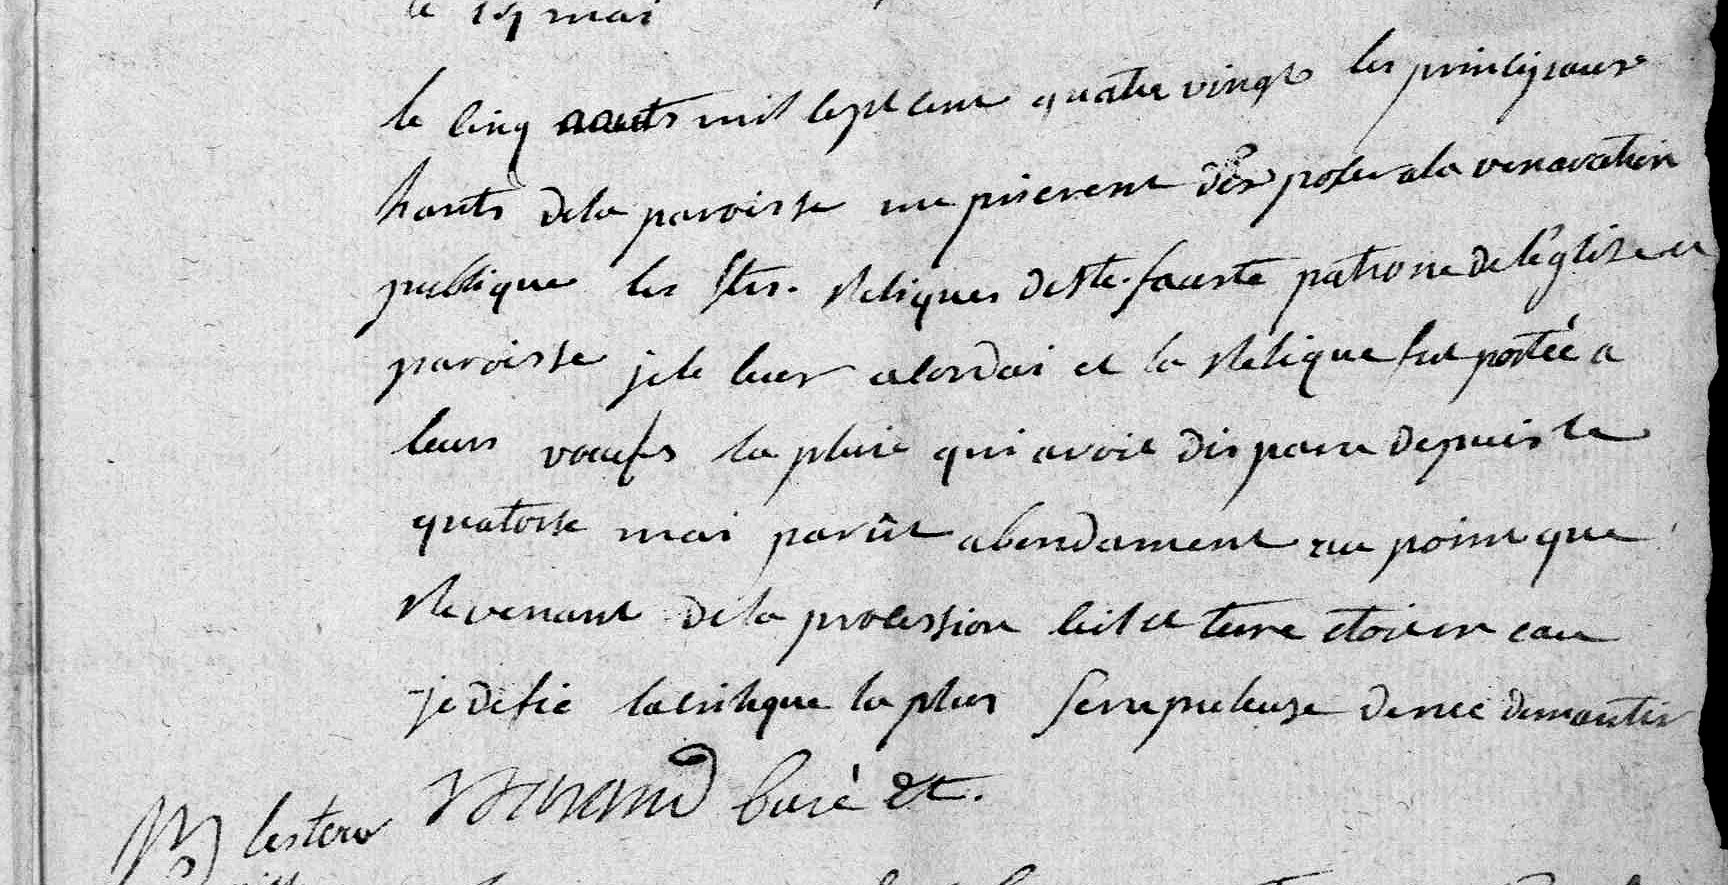 le 14 mai
le cinq aouts mil sept cent quatre vingt les principaux
hants de la paroisse me prierent d'exposer a la venaration
publique les stes. Reliques de Ste. fauste patrone de l'église et
paroisse je le leur acordai et la Relique fut portée a
leurs voeufs la pluie qui avoit disparu depuis le
quatorse mai parût abondament au point que
Revenant de la procession ciel et terre etoit en eau
je defie la critique la plus scrupuleuse de me demantir
curé &c.